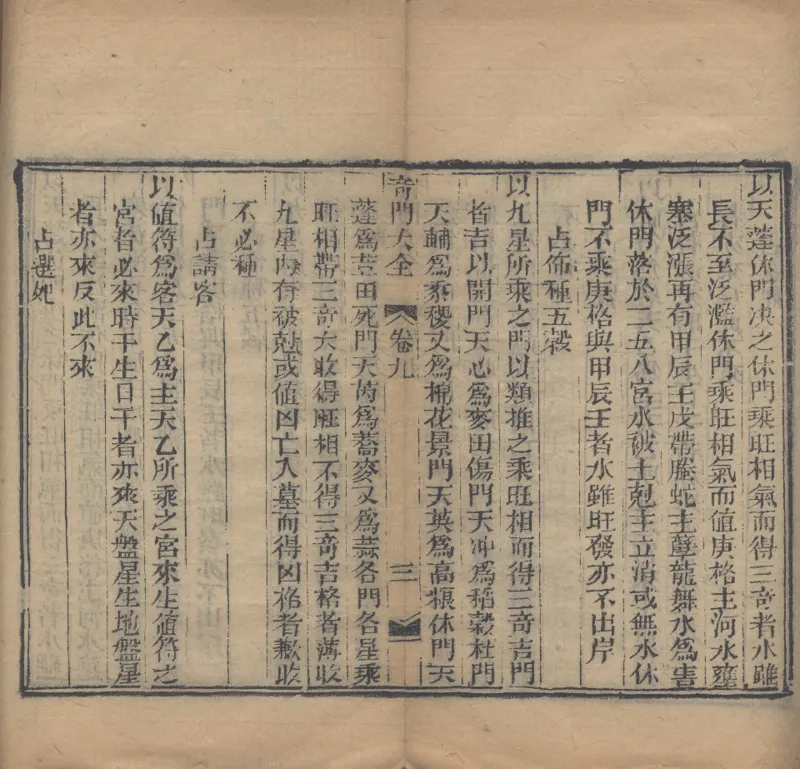 以天蓬休門决之休門乘旺相氣而得三奇者水雖
長不至泛濫休門乘旺相氣而值庚格主河水壅
塞泛漲再有甲辰壬戌帶螣蛇主孽龍舞水爲害
休門落於二五八宮水被土剋主立消或無水休
門不乘庚格與甲辰壬者水雖旺發亦不出岸
占佈種五穀
以九星所乘之門以類推之乘旺相而得三奇吉門
者吉以開門天心爲麥田傷門天冲爲稻穀杜門
天輔爲黍稷又爲棉花景門天英爲高粮休門天
奇門大全 卷九 三
蓬爲荳田死門天芮爲蕎麥又爲蒜各門各星乘
旺相帶三奇大收得旺相不得三奇吉格者薄收
九星內有被剋或值凶亡入墓而得凶格者歉收
不必種
占請客
以値符爲客天乙爲主天乙所乘之宮來生値符之
宮者必來時干生日干者亦來天盤星生地盤星
者亦來反此不來
占選妃